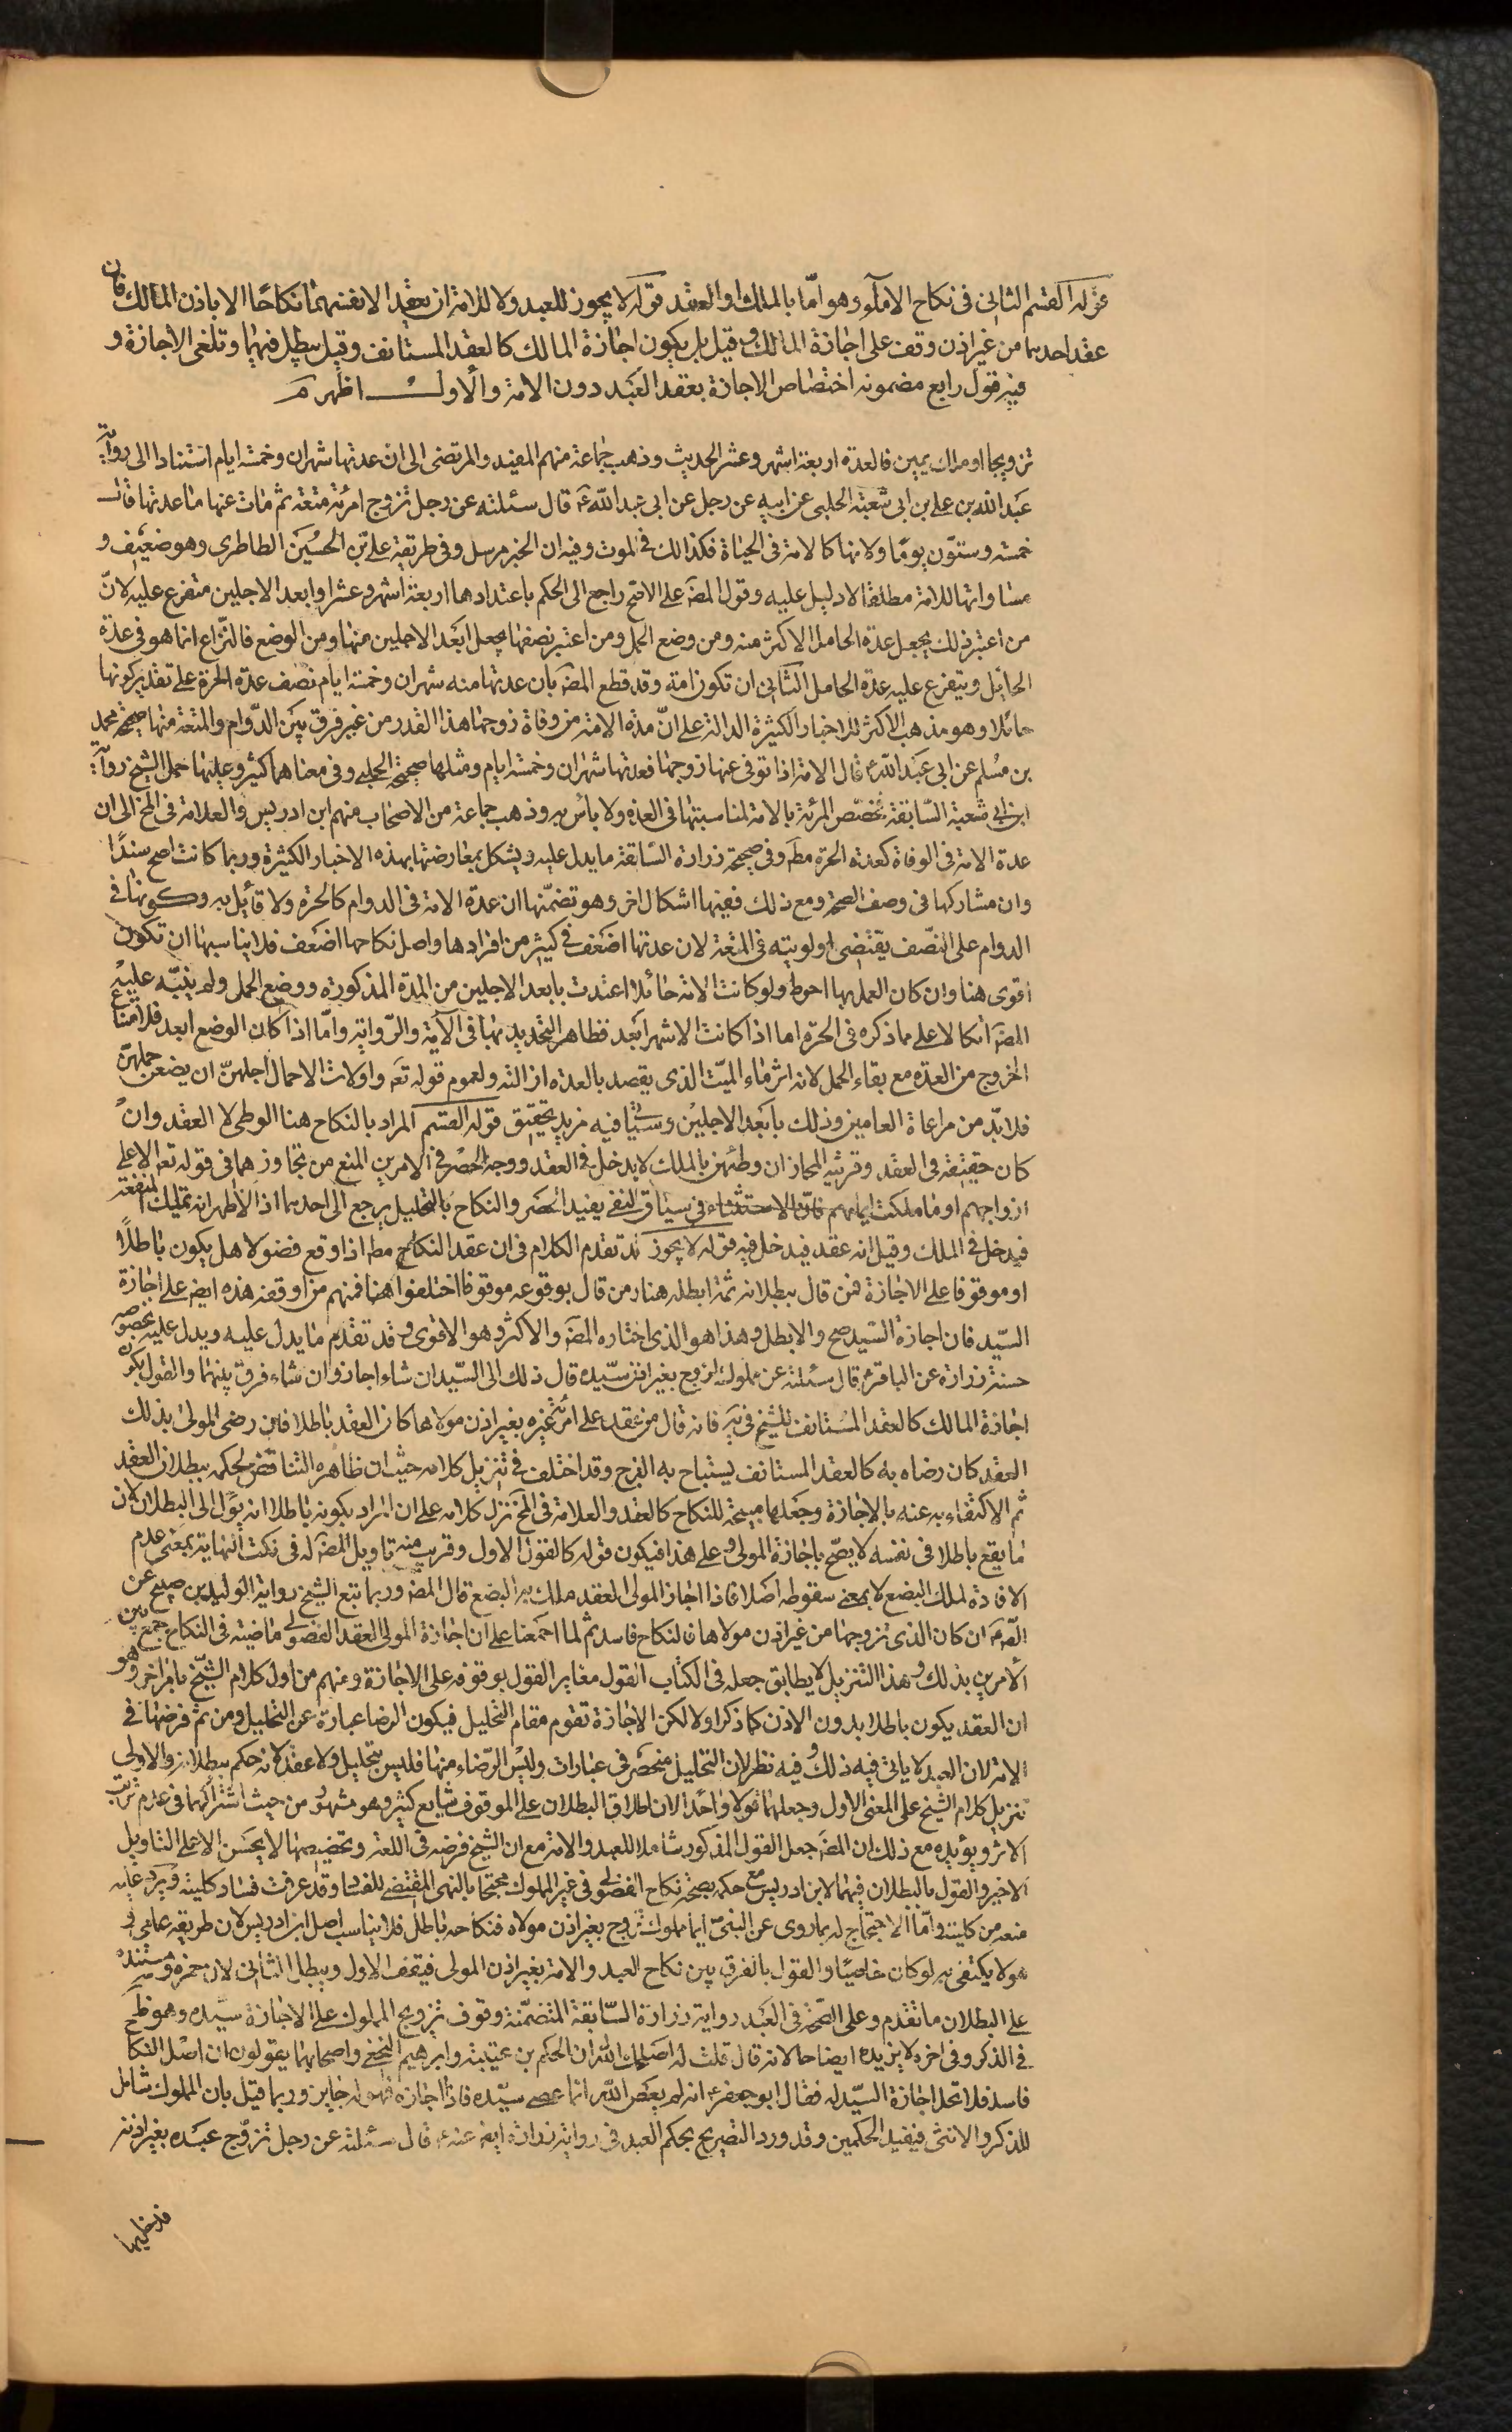 قوله القسم الثاني في نكاح الاماء وهو امّا بالملك او العقد قوله لا يجوز للعبد ولا للامة ان يعقد الانفسهما نكاحًا الا باذن المالك فان
عقد احدهما من غير اذن وقف على اجازة المالك وقيل بل يكون اجازة المالك كالعقد المستانف وقيل يبطل فيهما وتلغى الاجازة و
فيه قول رابع مضمونه اختصاص الاجازة بعقد العبد دون الامة والاول اظهر م
تزويجا او ملك يمين فالعدة اربعة اشهر وعشر الحديث وذهب جماعة منهم المفيد والمرتضى الى ان عدتها شهران وخمسة ايام استنادا الى رواية
عبد الله بن علي بن ابي شعبة الحلبي عن ابيه عن رجل عن ابي عبد الله ع قال سئلته عن رجل تزوج امرئة متعة ثم مات عنها ما عدتها قال
خمسة وستون يومًا ولانها كالامة في الحياة فكذالك في الموت وفيه ان الخبر مرسل وفي طريقه علي بن الحسين الطاطري وهو ضعيف و
مساواتها للامة مطلقا لا دليل عليه وقول المصَ على الاصح راجع الى الحكم باعتدادها اربعة اشهر وعشرا وابعد الاجلين متفرع عليه لانّ
من اعتبر ذلك يجعل عدة الحامل الاكثر منه ومن وضع الحمل ومن اعتبر نصفها يجعل ابعد الاجلين منها ومن الوضع فالنزاع انما هو في عدة
الحائل ويتفرع عليه عدة الحامل الثاني ان تكون امة وقد قطع المصَ بان عدتها منه شهران وخمسة ايام نصف عدة الحرة على تقدير كونها
حائلا وهو مذهب الاكثر للاخبار الكثيرة الدالة على انّ مدة الامة من وفاة زوجها هذا القدر من غير فرق بين الدّوام والمتعة منها صحيحة محمد
بن مسلم عن ابي عبد الله ع قال الامة اذا توفى عنها زوجها فعدتها شهران وخمسة ايام ومثلها صحيحة الحلبي وفي معناهما كثير وعليها حمل الشيخ رواية
ابن ابي شعبة السّابقة بتخصّص المرئة بالامة لمناسبتها في العدة ولا بأس به وذهب جماعة من الاصحاب منهم ابن ادريس والعلامة في المخ الى ان
عدة الامة في الوفاة كعدة الحرة مطَ وفي صحيحة زرارة السّابقة ما يدل عليه ويشكل بمعارضتها بهذه الاخبار الكثيرة وربما كانت اصح سندًا
وان مشاركها في وصف الصحة ومع ذلك ففيها اشكال اخر وهو تضمّنها ان عدة الامة في الدوام كالحرة ولا قائل به وكونها في
الدوام على النصّف يقتضى اولويته في المتعة لان عدتها اضعف في كثير من افرادها واصل نكاحها اضعف فلا يناسبها ان تكون
اقوى هنا وان كان العمل بها احوط ولو كانت الامة حائلا اعتدت بابعد الاجلين من المدة المذكورة ووضع الحمل ولم ينبّه عليه
المصَ اتكالا على ما ذكره في الحرّة اما اذا كانت الاشهر ابعد فظاهر التحديد بها في الآية والرّواية وامّا اذا كان الوضع ابعد فلامتناع
الخروج من العدة مع بقاء الحمل لانه اثر ماء الميّت الذى يقصد بالعدة ازالته ولعموم قوله تعَ واولات الاحمال اجلهنّ ان يضعن حملهن
فلابدّ من مراعاة العامين وذلك بابعد الاجلين وسيأتي فيه مزيد تحقيق قوله القسم المراد بالنكاح هنا الوطى لا العقد وان
كان حقيقة في العقد وقرينة المجاز ان وطئهن بالملك لا يدخل في العقد ووجه الحصر في الامرين المنع من تجاوزهما في قوله تعَ الا على
ازواجهم او ما ملكت ايمانهم فانّ الاستثناء في سياق النفي يفيد الحصر والنكاح بالتحليل يرجع الى احدهما اذ الاظهر انه تمليك المنفعة
فيدخل في الملك وقيل انه عقد فيدخل فيه قوله لا يجوز قد تقدم الكلام في ان عقد النكاح مطَ اذا وقع فضولا هل يكون باطلًا
او موقوفا على الاجازة فمن قال ببطلانه ثمة ابطله هنا ومن قال بوقوعه موقوفا اختلفوا هنا فمنهم من اوقفه هذه ايضَ على اجازة
السيّد فان اجازه السّيد صح والا بطل وهذا هو الذى اختاره المصَ والاكثر وهو الاقوى وقد تقدم ما يدل عليه ويدل عليه بخصوصه
حسنة زرارة عن الباقر ع قال سئلته عن مملوك تزوج بغير اذن سيّده قال ذلك الى السّيد ان شاء اجاز وان شاء فرق بينهما والقول بكون
اجازة المالك كالعقد المستانف للشيخ في يَه فانه قال من عقد على امة غيره بغير اذن مولاها كان العقد باطلا فان رضى المولى بذلك
العقد كان رضاه به كالعقد المستانف يستباح به الفرج وقد اختلف في تنزيل كلامه حيث ان ظاهره التناقض لحكمه ببطلان العقد
ثم الاكتفاء به عنه بالاجازة وجعلها مبيحة للنكاح كالعقد والعلامة في المخ نزل كلامه على ان المراد بكونه باطلا انه يؤل الى البطلان لان
ما يقع باطلا في نفسه لا يصّح باجازة المولى وعلى هذا فيكون قوله كالقول الاول وقريب منه تاويل المصَ له في نكت النهاية بمعنى عدم
الافادة لملك البضع لا بمعنى سقوطه اصلا فاذا اجاز المولى العقد ملك به البضع قال المصَ وربما تبع الشيخ رواية الوليد بن صبيح عن
الصَ ع ان كان الذى تزوجها من غير اذن مولاها فالنكاح فاسد ثم لما اجمعنا على ان اجازة المولى العقد الفضولى ماضية في النكاح جمع بين
الامرين بذلك وهذا التنزيل لا يطابق جعله في الكتاب القول مغاير القول بوقوفه على الاجازة ومنهم من اول كلام الشيخ بامر اخر وهو
ان العقد يكون باطلا بدون الاذن كما ذكر اولا لكن الاجازة تقوم مقام التحليل فيكون الرضا عبارة عن التحليل ومن ثم فرضها في
الامة لان العبد لا ياتي فيه ذلك وفيه نظر لان التحليل منحصر في عبارات وليس الرّضاء منها فليس بتحليل ولا عقد لانه حكم ببطلانه والاولى
تنزيل كلام الشيخ على المعنى الاول وجعلهما قولا واحدا لان اطلاق البطلان على الموقوف شايع كثير وهو مشهور من حيث اشتراكهما في عدم ترتب
الاثر ويؤيده مع ذلك ان المصَ جعل القول المذكور شاملا للعبد والامة مع ان الشيخ فرضه في الامة وتخصيصها لا يحسن الا على التاويل
الاخير والقول بالبطلان فيهما لابن ادريس مع حكمه بصحة نكاح الفضولى في غير المملوك محتجا بالنهى المقتضى للفساد وقد عرفت فساد كليته ويرد عليه
منعه من كليته وامّا الاحتجاج له بما روى عن النبيّ ايما مملوك تزوج بغير اذن مولاه فنكاحه باطل فلا يناسب اصل ابن ادريس لان طريقه عامى و
هو لا يكتفى به لو كان خاصيًا والقول بالفرق بين نكاح العبد والامة بغير اذن المولى فيقف الاول ويبطل الثاني لابن حمزة ومستنده
على البطلان ما تقدم وعلى الصّحة في العبد رواية زرارة السّابقة المتضمّنة وقوف تزويج المملوك على الاجازة سيّده وهو ظَ
في الذكر وفي اخره لا يزيده ايضاحا لانه قال قلت له اصلحك الله ان الحكم بن عتيبة وابرهيم النخعي واصحابهما يقولون ان اصل النكاح
فاسد فلا تحل اجازة السيّد له فقال ابو جعفر ع انه لم يعص الله انما عصى سيّده فاذا اجازه فهو له جايز وربما قيل بان المملوك شامل
للذكر والانثى فيفيد الحكمين وقد ورد التصريح بحكم العبد في رواية زرارة ايضَ عنه ع قال سئلته عن رجل تزوّج عبده بغير اذنه